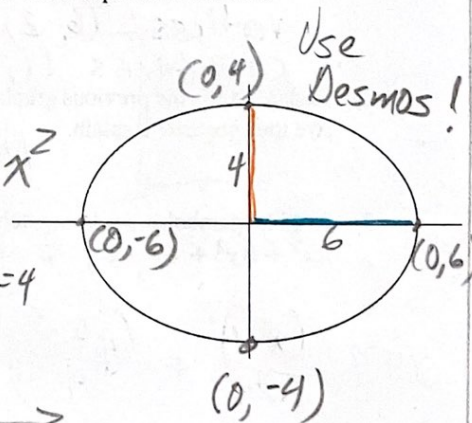 Use
(0,4) Desmos!
x²
4
(0,-6) 6 (0,6
=4
(0,-4)